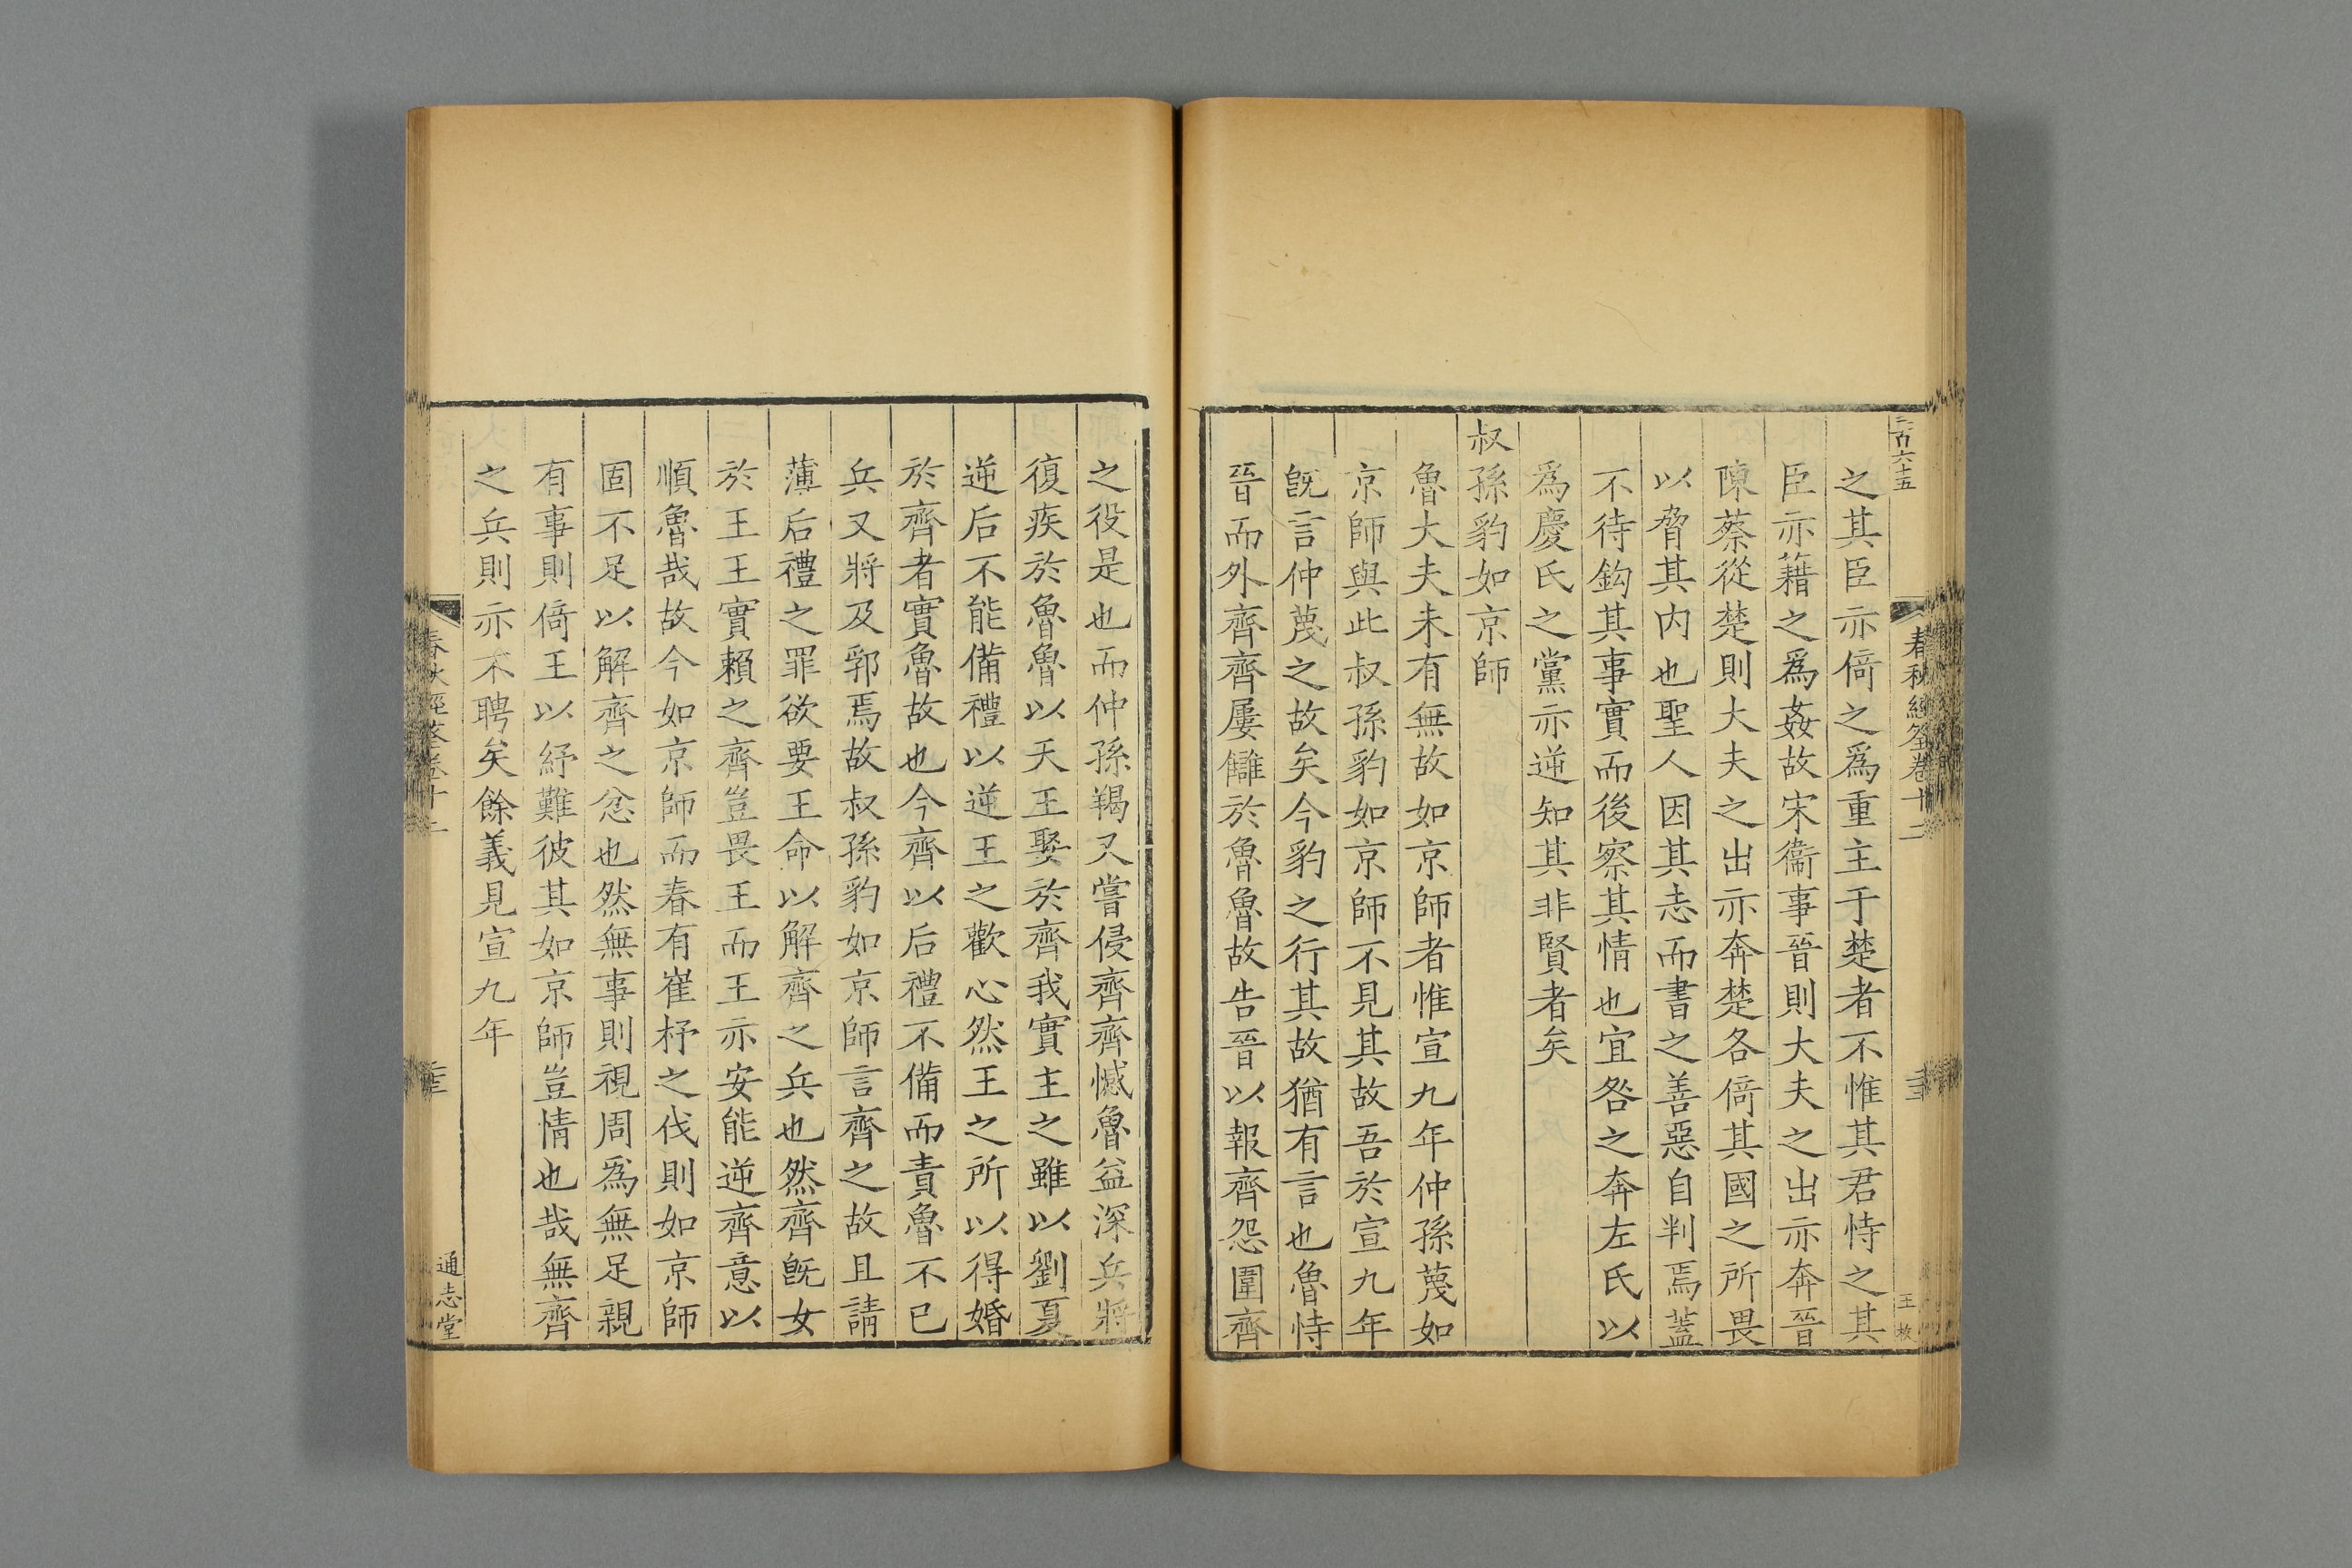 春秋經筌卷十二
王
之其臣亦倚之爲重主于楚者不惟其君恃之其
臣亦藉之爲姦故宋衞事晉則大夫之出亦奔晉
陳蔡從楚則大夫之出亦奔楚各倚其國之所畏
以脅其内也聖人因其志而書之善惡自判焉蓋
不待鈎其事實而後察其情也宜咎之奔左氏以
爲慶氏之黨亦逆知其非賢者矣
叔孫豹如京師
魯大夫未有無故如京師者惟宣九年仲孫蔑如
京師與此叔孫豹如京師不見其故吾於宣九年
旣言仲蔑之故矣今豹之行其故猶有言也魯恃
晉而外齊齊屢讎於魯魯故告晉以報齊怨圍齊
之役是也而仲孫羯又嘗侵齊齊憾魯益深兵將
復疾於魯魯以天王娶於齊我實主之雖以劉夏
逆后不能備禮以逆王之歡心然王之所以得婚
於齊者實魯故也今齊以后禮不備而責魯不已
兵又將及郛焉故叔孫豹如京師言齊之故且請
薄后禮之罪欲要王命以解齊之兵也然齊旣女
於王王實賴之齊豈畏王而王亦安能逆齊意以
順魯哉故今如京師而春有崔杼之伐則如京師
固不足以解齊之忿也然無事則視周爲無足親
有事則倚王以紓難彼其如京師豈情也哉無齊
之兵則亦不聘矣餘義見宣九年
春秋經筌卷十二
通志堂